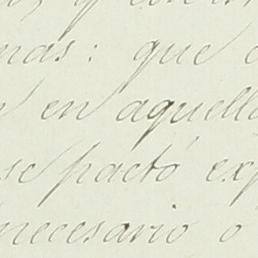 y con
nas: que
en aquell
se pactó exp
necesario o